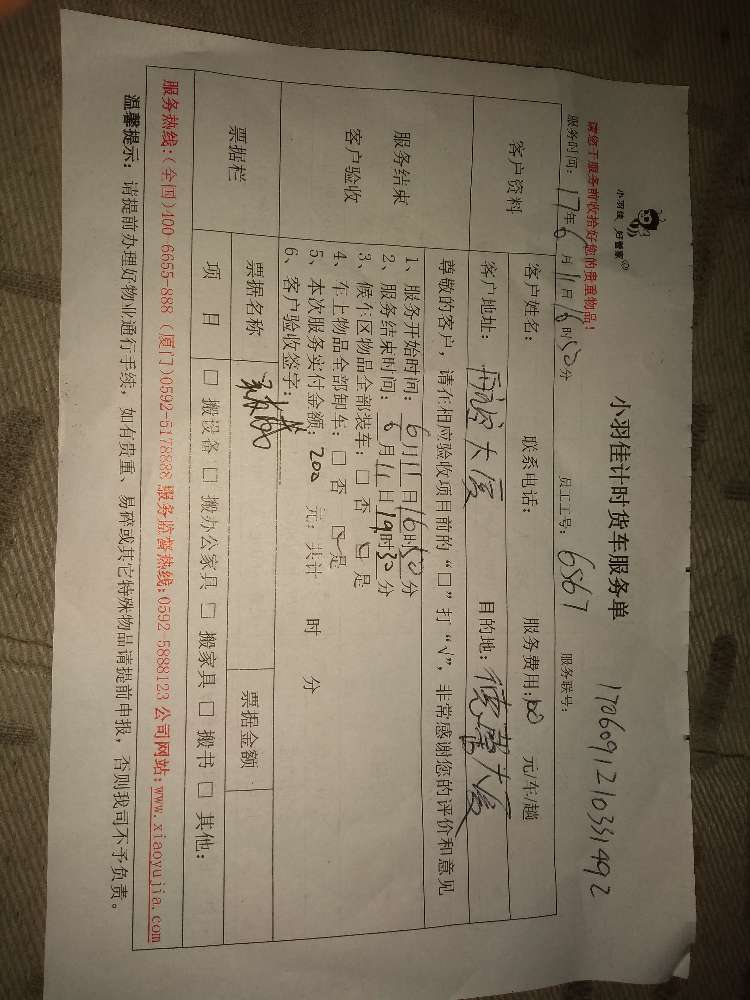 小羽佳 好管家®
小羽佳计时货车服务单
1706091210331492
请您于服务前收拾好您的贵重物品!
服务时间: 17年6月11日16时50分 员工工号: 6867 服务联号:
客户资料
客户姓名: 联系电话: 服务费用:100 元/车/趟
客户地址: 大厦 目的地: 大厦
服务结束
客户验收
尊敬的客户,请在相应验收项目前的“□”打“√”,非常感谢您的评价和意见
1、服务开始时间:6月11日16时50分
2、服务结束时间:6月11日19时30分
3、候车区物品全部装车:□ 否 ☑ 是
4、车上物品全部卸车:□ 否 ☑ 是
5、本次服务实付金额:200 元;共计 时 分
6、客户验收签字:
票据栏
票据名称 票据金额
项 目 □ 搬设备 □ 搬办公家具 □ 搬家具 □ 搬书 □ 其他:
服务热线:(全国)400-6655-888 (厦门)0592-5178888 服务监督热线:0592-5888123 公司网站:www.xiaoyujia.com
温馨提示: 请提前办理好物业通行手续,如有贵重、易碎或其它特殊物品请提前申报,否则我司不予负责。